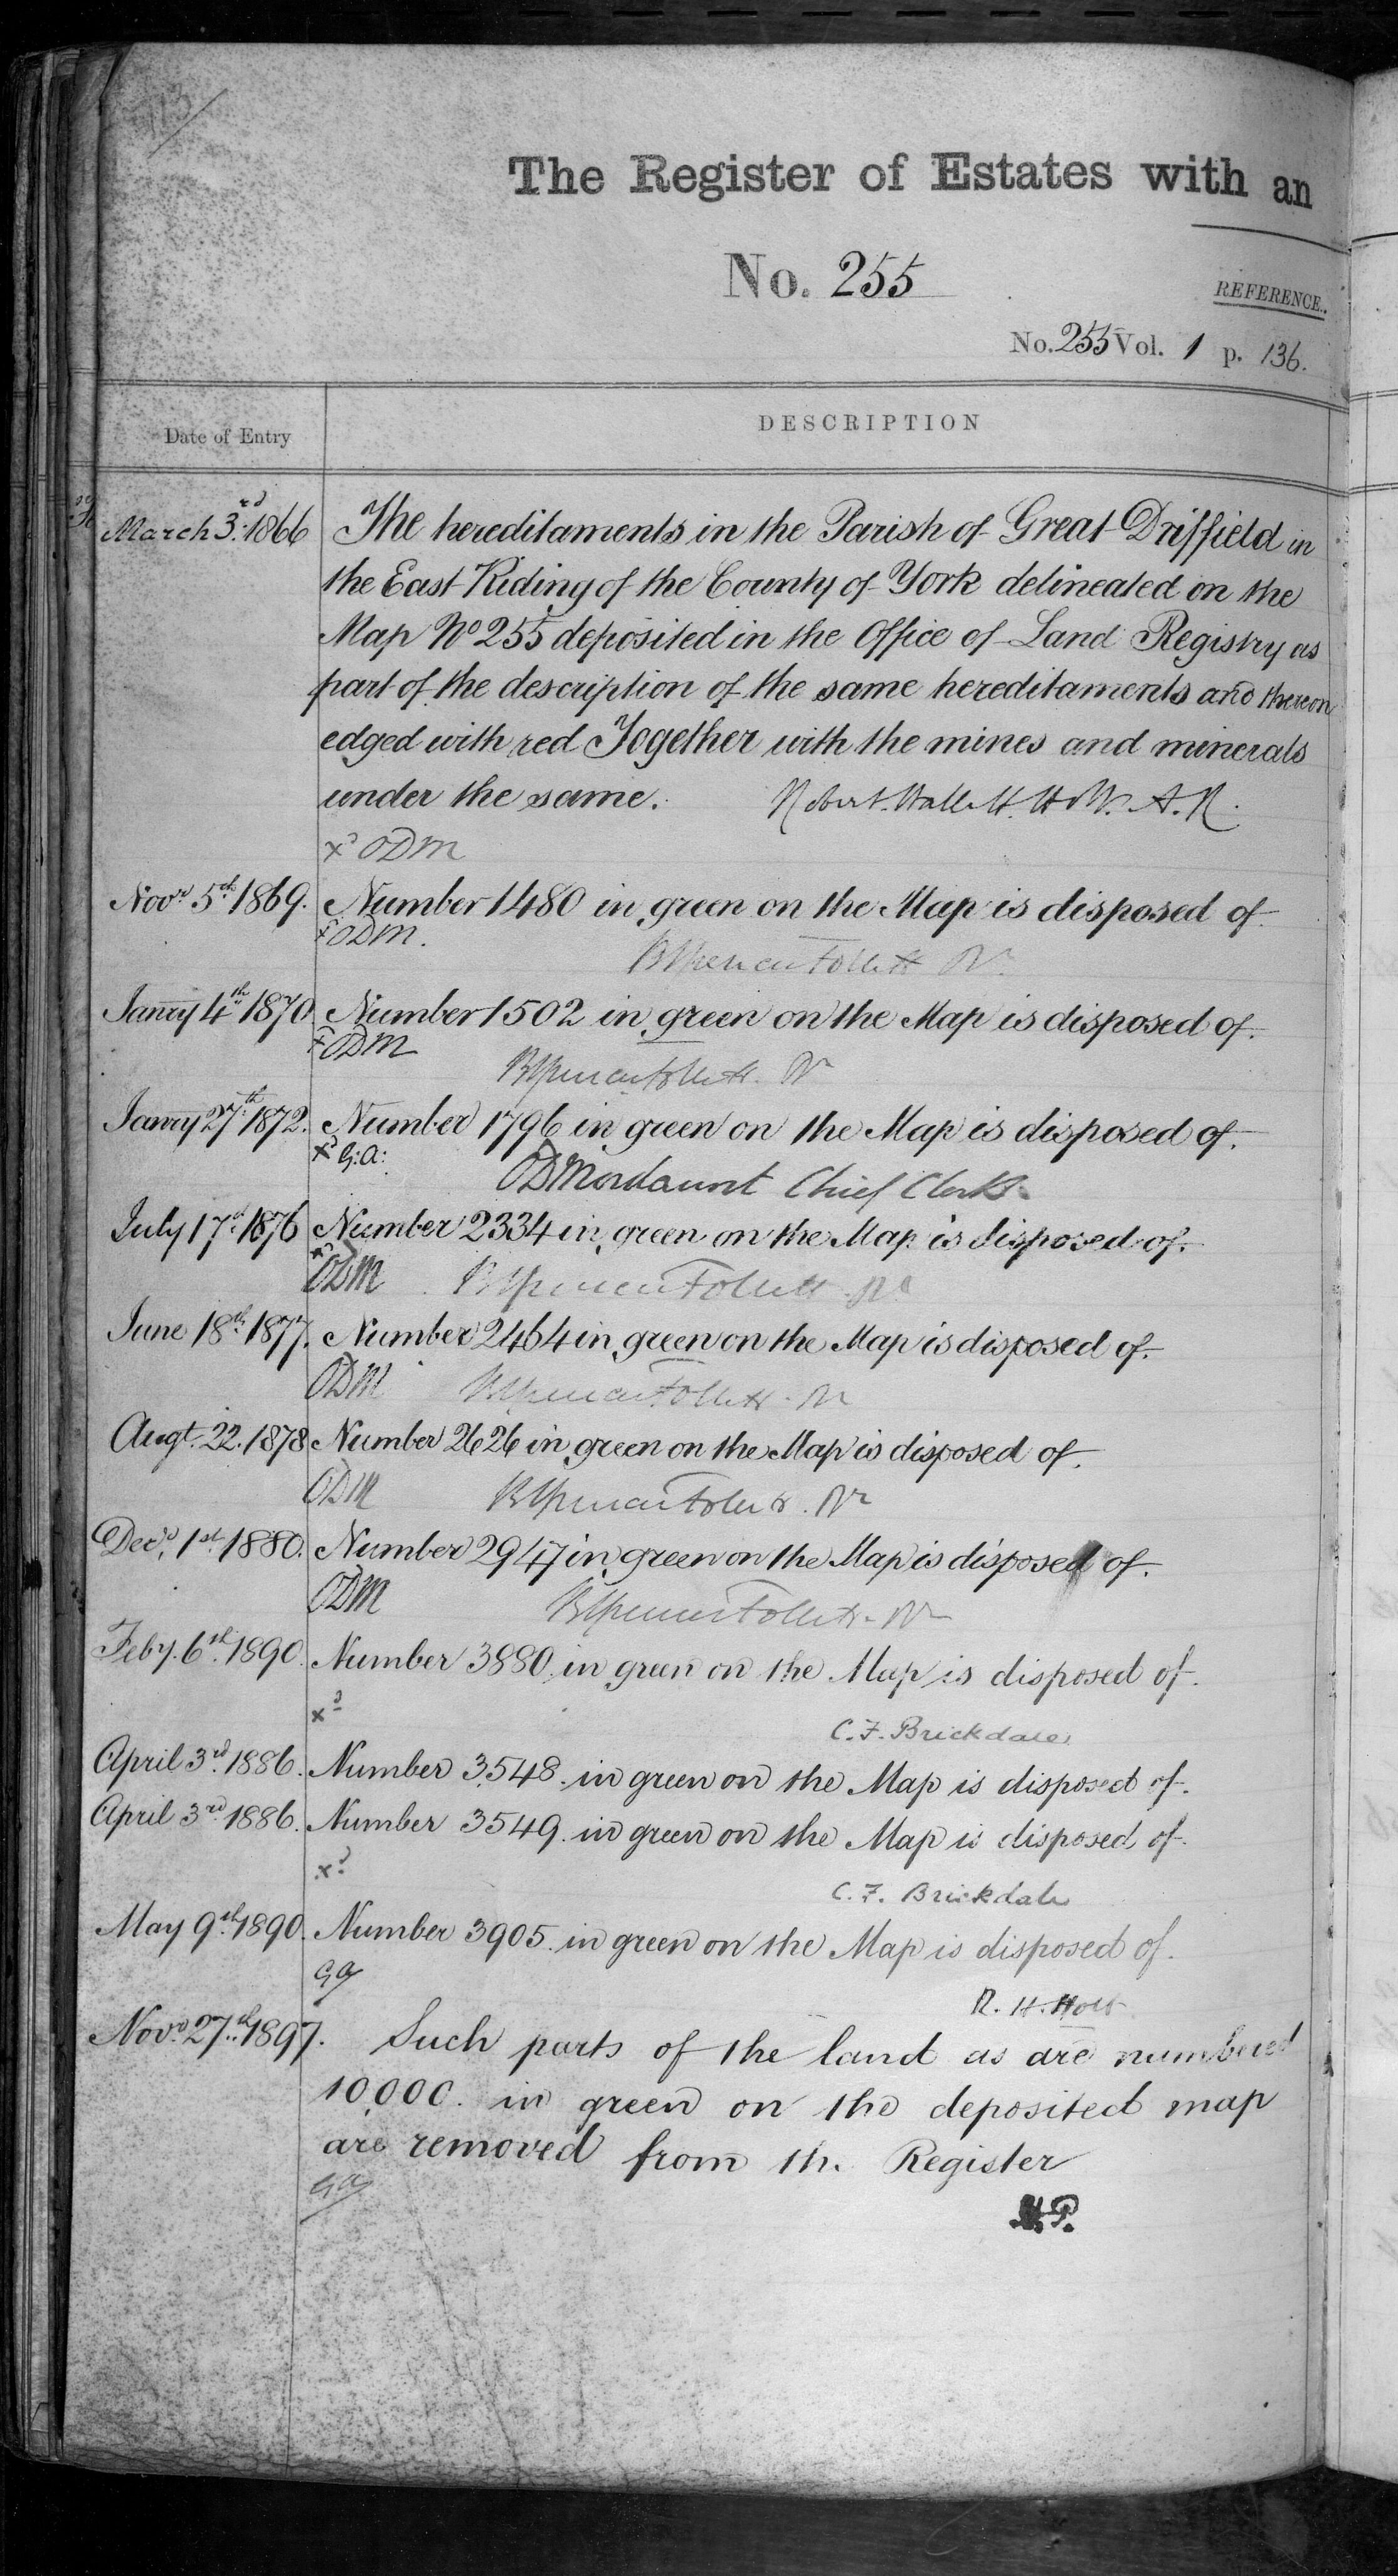 The Register of Estates with an
No. 255
REFERENCE.
No. 255 Vol. 1 p. 136.
Date of Entry DESCRIPTION
March 3rd 1866 The hereditaments in the Parish of Great Driffield in
the East Riding of the County of York delineated on the
Map No 255 deposited in the Office of Land Registry as
part of the description of the same hereditaments and thereon
edged with red Together with the mines and minerals
under the same. Robert Hallett Holt. A. R.
xd ODM
Novr 5th 1869. Number 1480 in green on the Map is disposed of.
xd ODM.
B Spencer Follett Rr
Janry 4th 1870 Number 1502 in green on the Map is disposed of.
xd ODM
B Spencer Follett. Rr
Janry 27th 1872. Number 1796 in green on the Map is disposed of.
xd G.A:
ODMordaunt Chief Clerk.
July 17th 1876 Number 2334 in green on the Map is disposed of.
xd
ODM B Spencer Follett Rr
June 18th 1877. Number 2464 in green on the Map is disposed of.
ODM B Spencer Follett. Rr
Augt. 22. 1878 Number 2626 in green on the Map is disposed of.
ODM B Spencer Follett. Rr
Decr. 1st 1880. Number 2947 in green on the Map is disposed of.
ODM B Spencer Follett. Rr
Feby. 6th 1890. Number 3880 in green on the Map is disposed of.
xd
C. F. Brickdale.
April 3rd 1886. Number 3548. in green on the Map is disposed of.
April 3rd 1886. Number 3549. in green on the Map is disposed of.
xd
C. F. Brickdale
May 9th 1890. Number 3905. in green on the Map is disposed of.
GA
R. H. Holt
Novr 27th 1897. Such parts of the land as are numbered
10,000. in green on the deposited map
are removed from the Register
GA